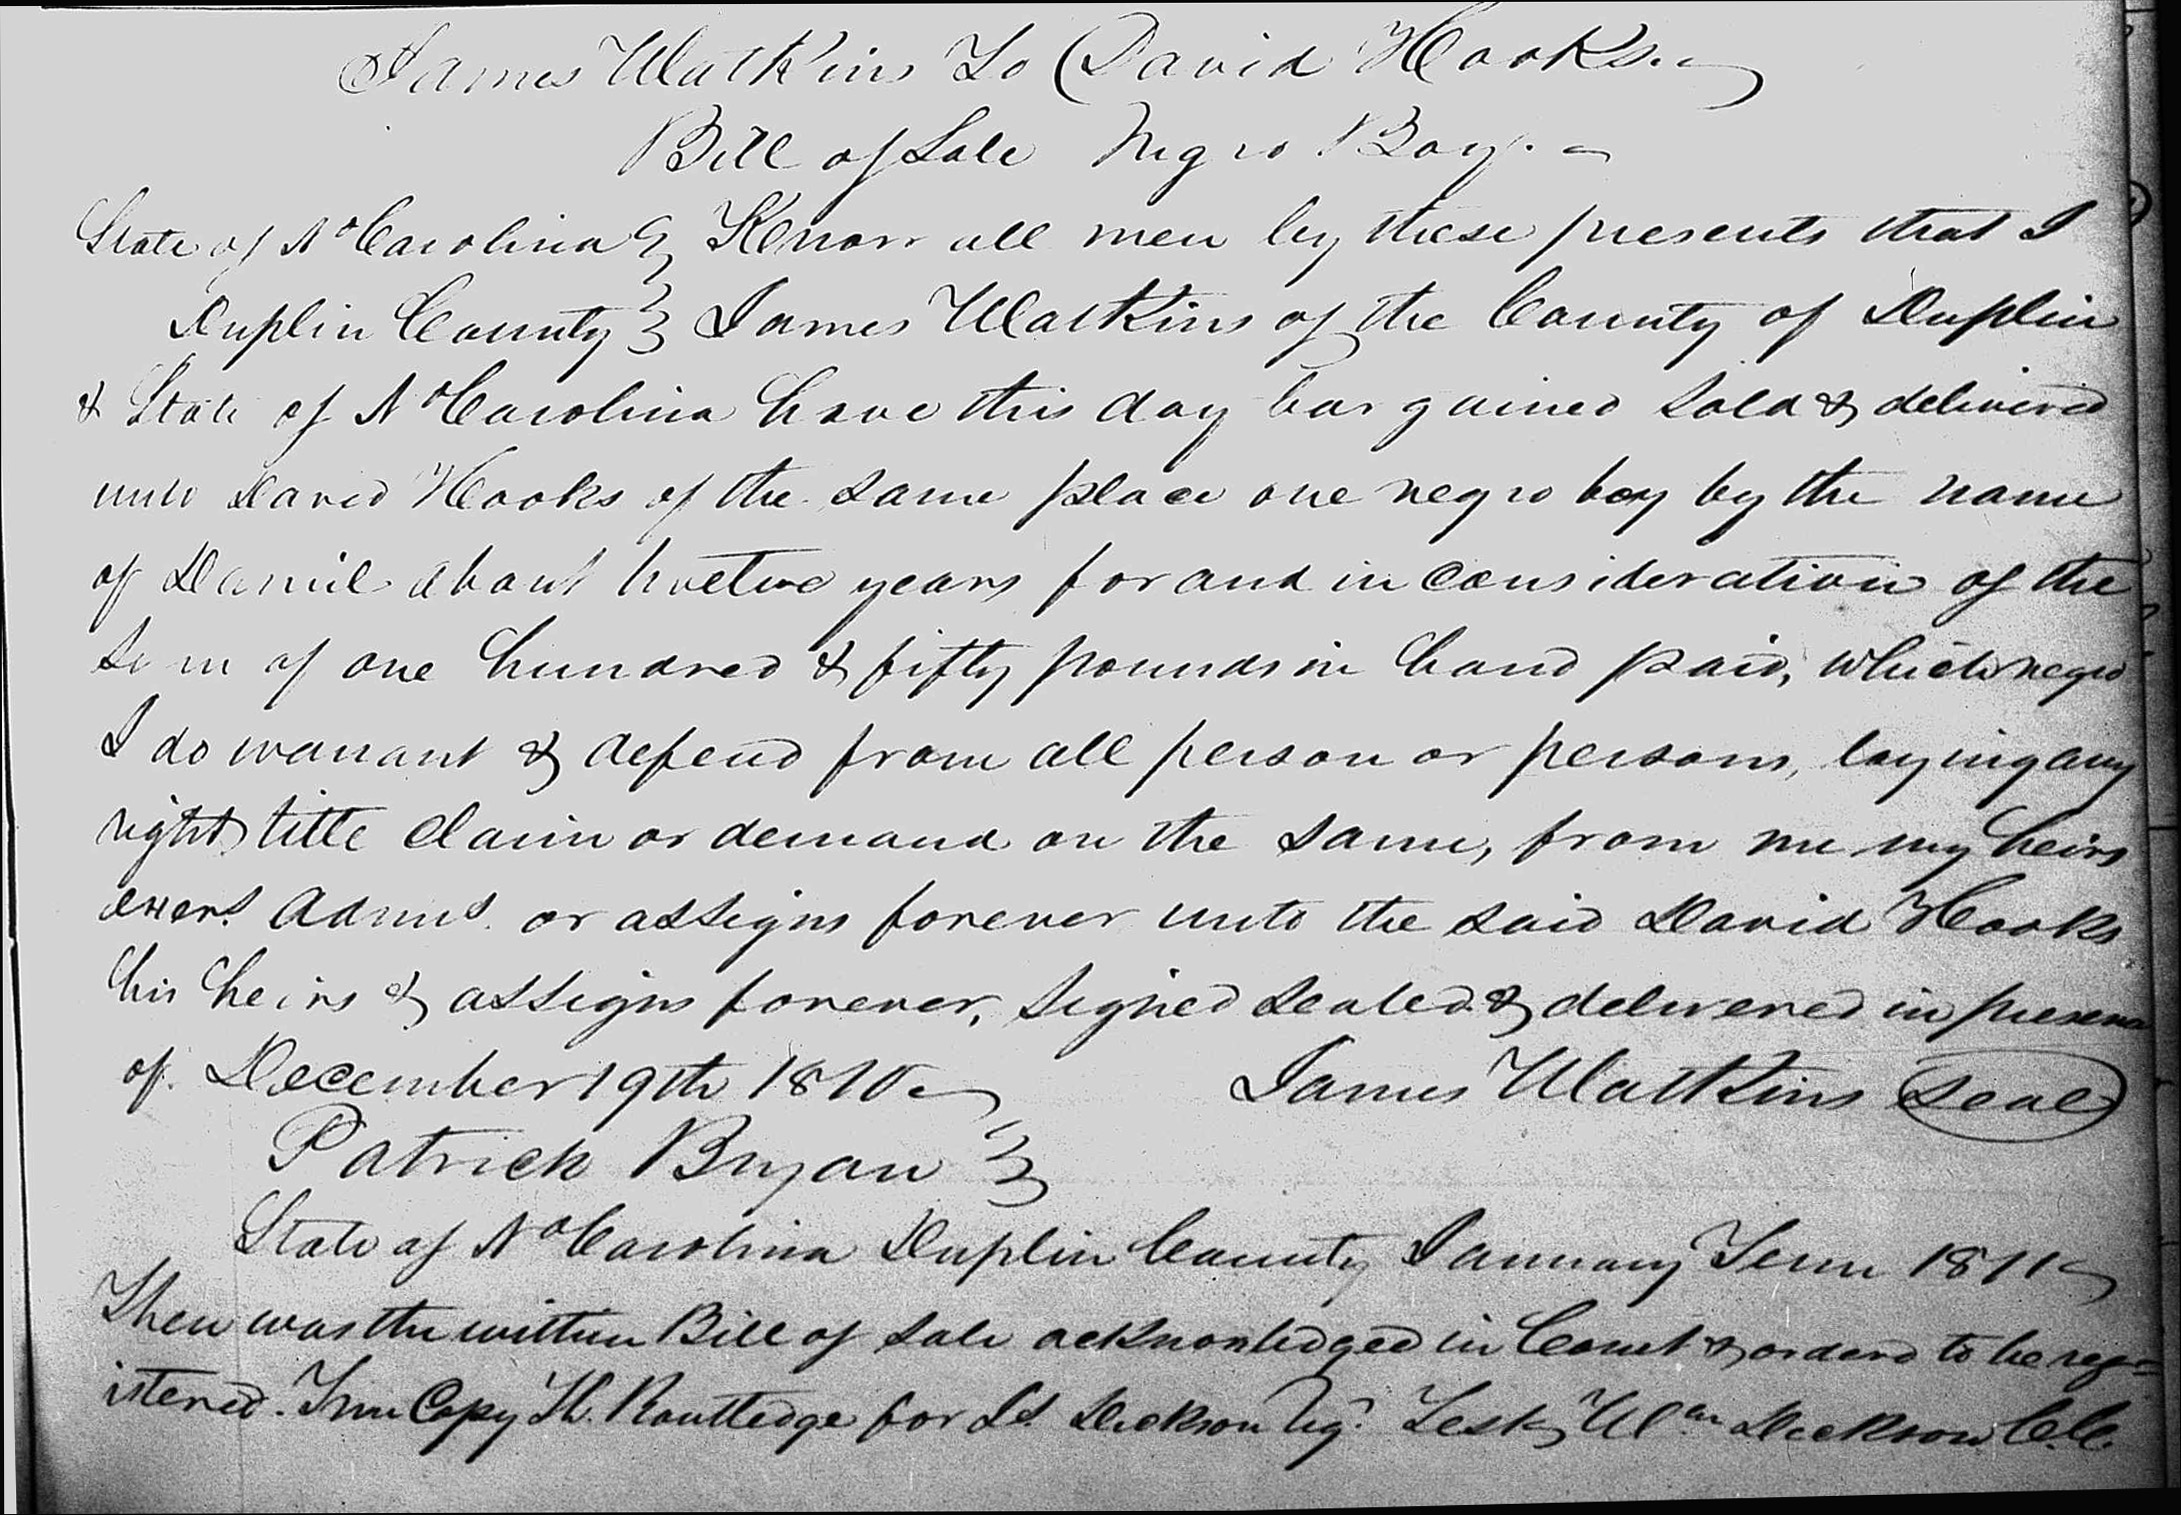 James Watkins To David Hooks.
Bill of Sale Negro Boy.
State of No Carolina } Know all men by these presents that I
Duplin County } James Watkins of the County of Duplin
& State of No Carolina have this day bargained sold & delivered
unto David Hooks of the same place one negro boy by the name
of Daniel about twelve years for and in consideration of the
sum of one hundred & fifty pounds in hand paid, which negro
I do warrant & defend from all person or persons, laying any
right title claim or demand on the same, from me my heirs
exers. Adms. or assigns forever unto the said David Hooks
his heirs & assigns forever, signed sealed & delivered in presence
of. December 19th 1810 James Watkins Seal
Patrick Bryan }
State of No Carolina Duplin County January Term 1811
Then was the within Bill of Sale acknowledged in Court & orderd to be reg=
istered. True Copy Routledge for Dickson Test Wm Dickson C.C.